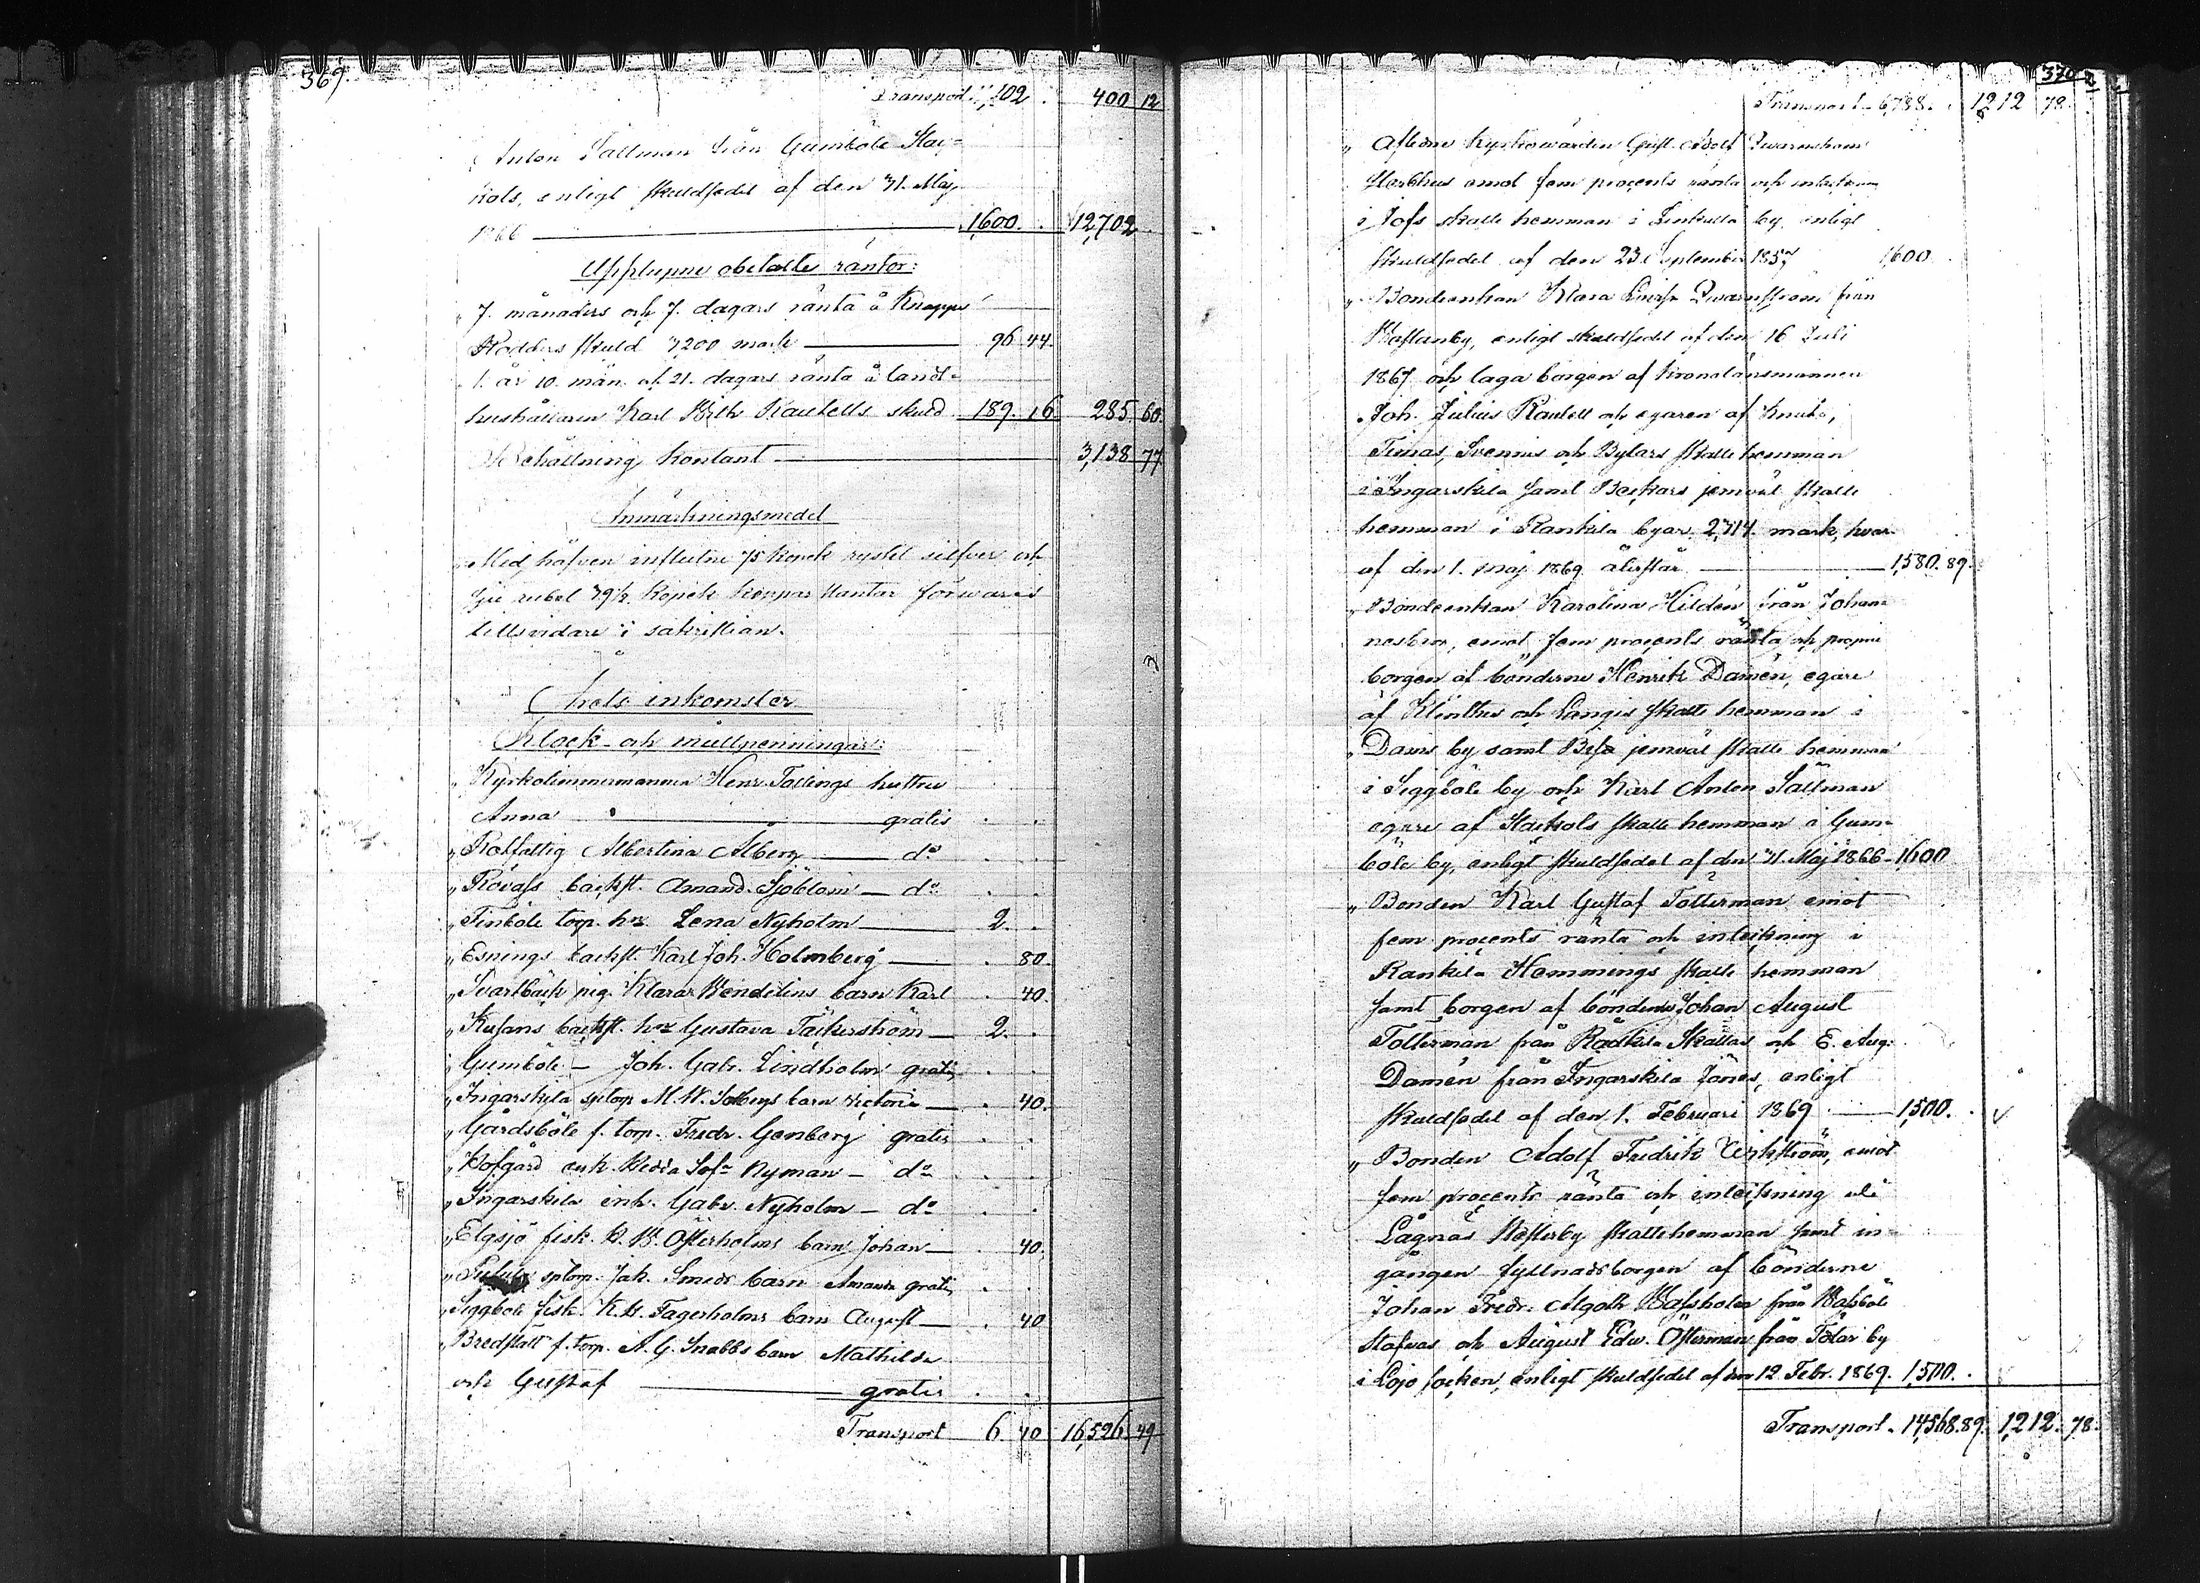 369.
Transport 11,102 . 400 12
Anton Sallman från Gumböle Stac-
kols, enligt skuldsedel af den 31. Maj
1866 1,600. . 12,702
Upplupne obetalte räntor:
7. månaders och 7. dagars ränta å Knapps
Rodders skuld 3,200 mark 96 44.
1. år 10. mån. och 21. dagars ränta å land-
hushållaren Karl Wilh. Rautells skuld 189. 16 285. 60.
Behållning kontant 3,138 77
Anmärkningsmedel
Med håfven influtne 75 kopek ryskt silfver och
sju rubel 79½ kopek koppar slantar förwaras
tillsvidare i sakristian.
Årets inkomster
Klock- och mullpenningar:
" Kyrkotimmermannen Henr. Tallings hustru
Anna gratis . .
" Rotfattig Albertina Alberg d:o . .
" Rövass backst. Amand. Sjöblom d:o . .
" Finböle torp. h:u Lena Nyholm 2. .
" Esnings backst. Karl Joh. Holmberg . 80.
" Svartbäck pig. Klara Wendelins barn Karl . 40.
" Kusans backst. h:u Gustava Täckerström 2. .
" Gumböle Joh. Gabr. Lindholm gratis . .
" Ingarskila sptorp M. W. barn Victoria . 40.
" Gårdsböle f. torp. Fredr. Genberg gratis . .
" Hofgård enk. Hedda Sof:a Nyman d:o . .
" Ingarskila inh. Gabr. Nyholm d:o . .
" Elgsjö fisk. K. W. Österholms barn Johan . 40.
" sptorp. Jak. Smeds barn Amanda gratis . .
" Siggböle fisk. K. W. Fagerholms barn August . 40
" Bredslätt f. torp. A. G. Snabbs barn Mathilda
och Gustaf gratis . .
Transport 6. 40 16,526. 49
370
Transport 6,788. . 1,212 78.
" Aflidne kyrkowärden Gust. Adolf Qvarnström
sterbhus emot fem procents ränta och inteckning
i Jofs skatte hemman i Linkulla by, enligt
skuldsedel af den 23. September 1857 1,600
" Bondeenkan Klara Lovisa Qwarnström från
Westerby, enligt skuldsedel af den 16 Juli
1867 och laga borgen af kronolänsmannen
Joh. Julius Rautell och egaren af Knuts,
Timas, Svennis och Bylars skatte hemman
i Ingarskila samt Backars jemväl skatte
hemman i Rankila byar 2,314. mark, hvar-
af den 1. maj 1869 återstår 1,580. 89.
" Bondeenkan Karolina Hildén från Johan-
nesbro, emot fem procents ränta och proprie
borgen af bönderne Henrik Damén, egare
af Klinthus och Langis skatte hemman i
" Davis by samt Bisa jemväl skatte hemman
i Siggböle by och Karl Anton Sällman
egare af Stackols skatte hemman i Gum-
böle by, enligt skuldsedel af den 31. Maj 1866 1,600
" Bonden Karl Gustaf Tötterman emot
fem procents ränta och inteckning i
Rankila Hemmings skatte hemman
samt borgen af bönderne Johan August
Tötterman från Rankila Skallas och E. Aug.
Damén från Ingarskila Jönes, enligt
skuldsedel af den 1. Februari 1869 1,500. .
" Bonden Adolf Fredrik Wickström, emot
fem procents ränta och inteckning uti
Lågnäs Westerby skattehemman samt in-
gången fyllnadsborgen af bönderne
Johan Fredr. Algoth Wassholm från Wassböle
Stafvas och August Edw. Österman från Tötar by
i Lojo socken, enligt skuldsedel af den 12 Febr. 1869. 1,500. .
Transport. 14,568. 89. 1,212. 78.